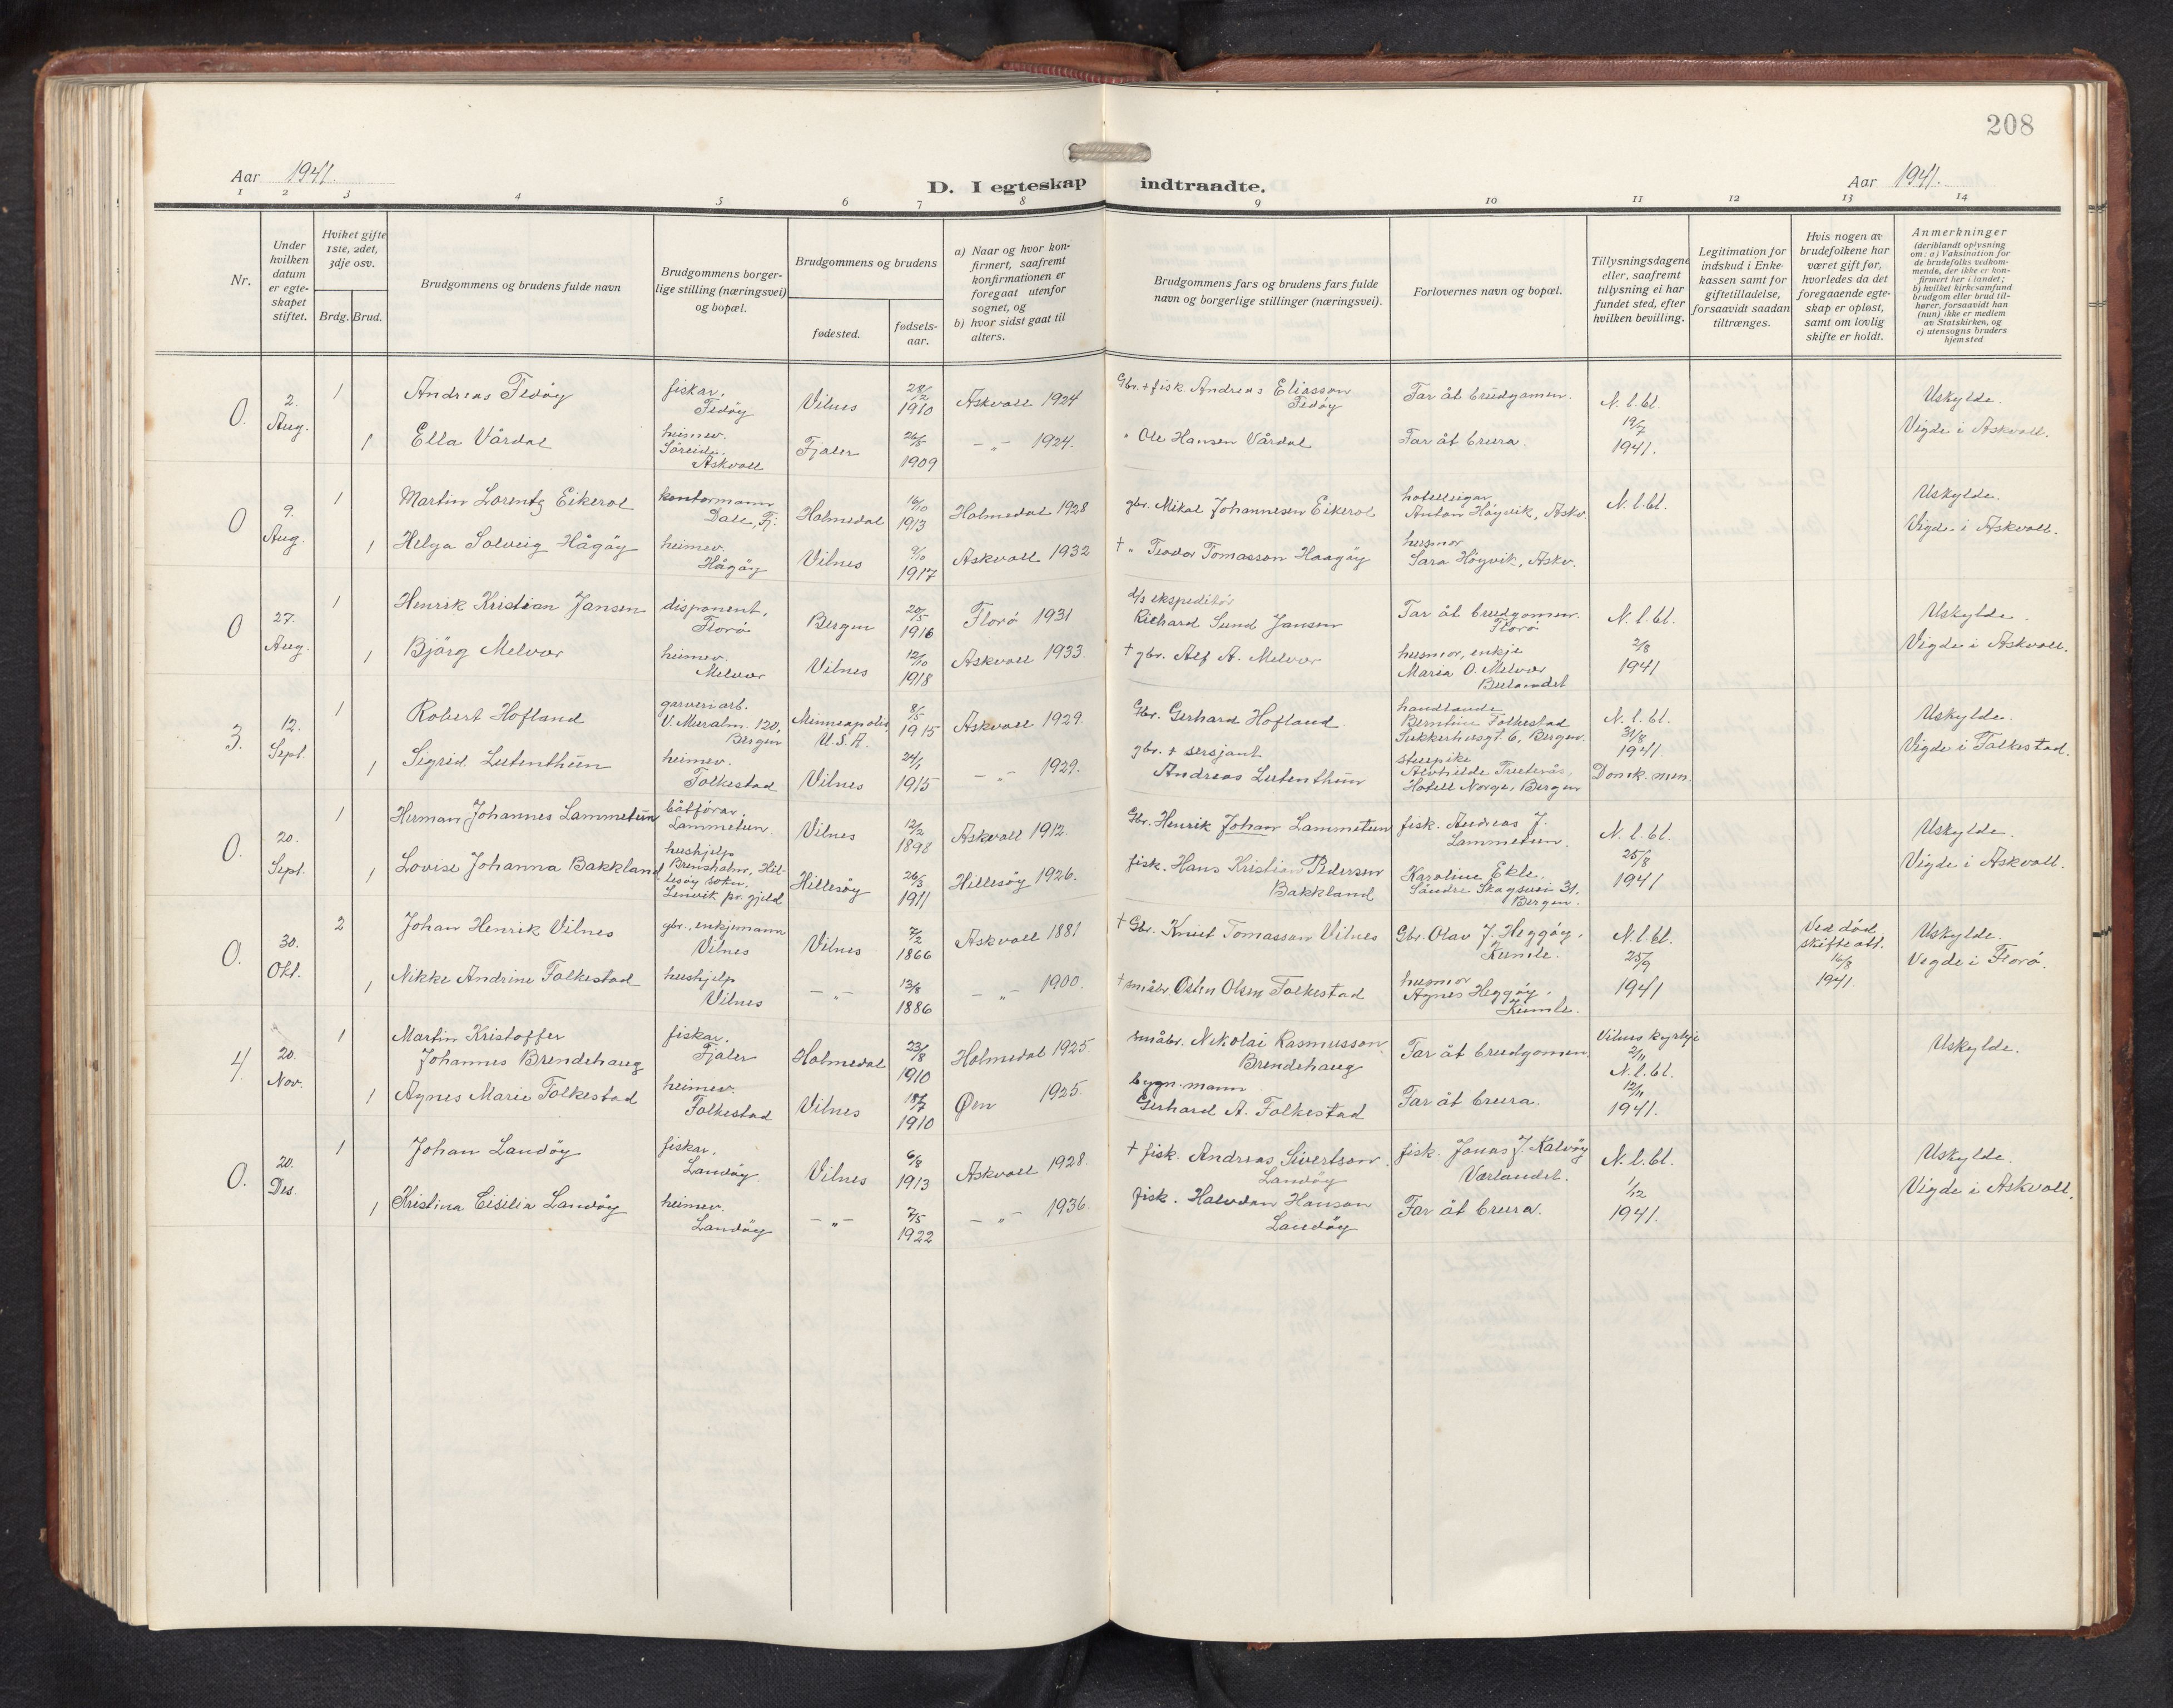 208
Aar 1941.
D. I egteskap indtraadte.
Aar 1941.
1 2 3 4 5 6 7 8 9 10 11 12 13 14
Nr.
Under hvilken datum er egteskapet stiftet.
Hviket gifte 1ste, 2det, 3dje osv.
Brdg. Brud.
Brudgommens og brudens fulde navn
Brudgommens borgerlige stilling (næringsvei) og bopæl.
Brudgommens og brudens
fødested.
fødselsaar.
a) Naar og hvor konfirmert, saafremt konfirmationen er foregaat utenfor sognet, og
b) hvor sidst gaat til alters.
Brudgommens fars og brudens fars fulde navn og borgerlige stillinger (næringsvei).
Forlovernes navn og bopæl.
Tillysningsdagene eller, saafremt tillysning ei har fundet sted, efter hvilken bevilling.
Legitimation for indskud i Enkekassen samt for giftetilladelse, forsaavidt saadan tiltrænges.
Hvis nogen av brudefolkene har været gift før, hvorledes da det foregaaende egteskap er opløst, samt om lovlig skifte er holdt.
Anmerkninger
(deriblandt oplysning om: a) Vaksination for de brudefolks vedkommende, der ikke er konfirmert her i landet; b) hvilket kirkesamfund brudgom eller brud tilhører, forsaavidt han (nun) ikke er medlem av Statskirken, og c) utensogns bruders hjemsted
0 2. Aug. 1 Andreas Fedøy fiskar, Fedøy Vilnes 28/2 1910 Askvoll 1924 Gbr. + fisk. Andreas Eliasson Fedøy Far åt brudgomen. N. l. bl. 19/7 1941. Uskylde. Vigde i Askvoll.
1 Ella Vårdal heimev. Søreide, Askvoll Fjaler 26/5 1909 – „ – 1924. „ Ole Hansen Vårdal Far åt brura.
0 9. Aug. 1 Martin Lorentz Eikerol kontormann Dale, Fj. Holmedal 16/10 1913 Holmedal 1928 gbr. Mikal Johannesen Eikerol hotelleigar Anton Høyvik, Askv. N. l. bl. Uskylde. Vigde i Askvoll.
1 Helga Solveig Hågøy heimev. Hågøy Vilnes 9/10 1917 Askvoll 1932 † „ Teodor Tomasson Haagøy husmor Sara Høyvik, Askv.
0 27. Aug. 1 Henrik Kristian Jansen disponent, Florø Bergen 20/5 1916 Florø 1931 d/s ekspeditør Richard Sund Jansen Far åt brudgomen. Florø N. l. bl. 2/8 1941 Uskylde. Vigde i Askvoll.
1 Bjørg Melvær heimev. Melvær Vilnes 12/10 1918 Askvoll 1933. † gbr. Alf A. Melvær husmor, enkje Maria O. Melvær Bulandet
3. 12. Sept. 1 Robert Hofland garveriarb. V. Muralm. 120, Bergen Minneapolis, U.S.A. 8/5 1915 Askvoll 1929. Gbr. Gerhard Hofland. handlande Berntine Folkestad Sukkerhusgt. 6, Bergen. N. l. bl. 31/8 1941. Domk. men. Uskylde. Vigde i Folkestad.
1 Sigrid Lutenthun heimev. Folkestad Vilnes 24/1 1915 – „ – 1929. gbr. + sersjant Andreas Lutenthun stuepike Hotell Norge, Bergen
0. 20. Sept. 1 Herman Johannes Lammetun båtførar, Lammetun. Vilnes 12/2 1898 Askvoll 1912. Gbr. Henrik Johan Lammetun fisk. Andreas J. Lammetun. N. l. bl. 25/8 1941 Uskylde. Vigde i Askvoll.
1 Lovise Johanna Bakkland hushjelp Brensholm, Hillesøy sokn, Lenvik pr.gjeld Hillesøy 26/3 1911 Hillesøy 1926. fisk. Hans Kristian Pedersen Bakkland Karoline Ekle, Søndre Skogsvei 31, Bergen.
0. 30. Okt. 2 Johan Henrik Vilnes gbr., enkjemann Vilnes Vilnes 7/2 1866 Askvoll 1881 † Gbr. Knut Tomasson Vilnes Gbr. Olav J. Heggøy, Kumle. N. l. bl. 25/9 1941 Ved død, skifte att. 16/8 1941. Uskylde. Vegde i Florø.
1 Nikke Andrine Folkestad hushjelp Vilnes – „ – 13/8 1886 – „ – 1900. † småbr. Osten Olsen Folkestad husmor Agnes Heggøy, Kumle.
4. 20. Nov. 1 Martin Kristoffer Johannes Brendehaug fiskar. Fjaler Holmedal 23/8 1910 Holmedal 1925. småbr. Nikolai Rasmusson Brendehaug Far åt brudgomen. Vilnes kyrkje 2/11 N. l. bl. 12/11 1941. Uskylde.
1 Agnes Marie Folkestad heimev. Folkestad Vilnes 18/7 1910 Øen 1925. bygn.mann Gerhard A. Folkestad Far åt brura.
0. 20. Des. 1 Johan Landøy fiskar, Landøy Vilnes 6/8 1913 Askvoll 1928. † fisk. Andreas Sivertson Landøy fisk. Jonas J. Kalvøy Værlandet. N. l. bl. 1/12 1941. Uskylde. Vigde i Askvoll.
1 Kristina Cisilia Landøy heimev. Landøy – „ – 7/5 1922 – „ – 1936. fisk. Halvdan Hanson Landøy Far åt brura.